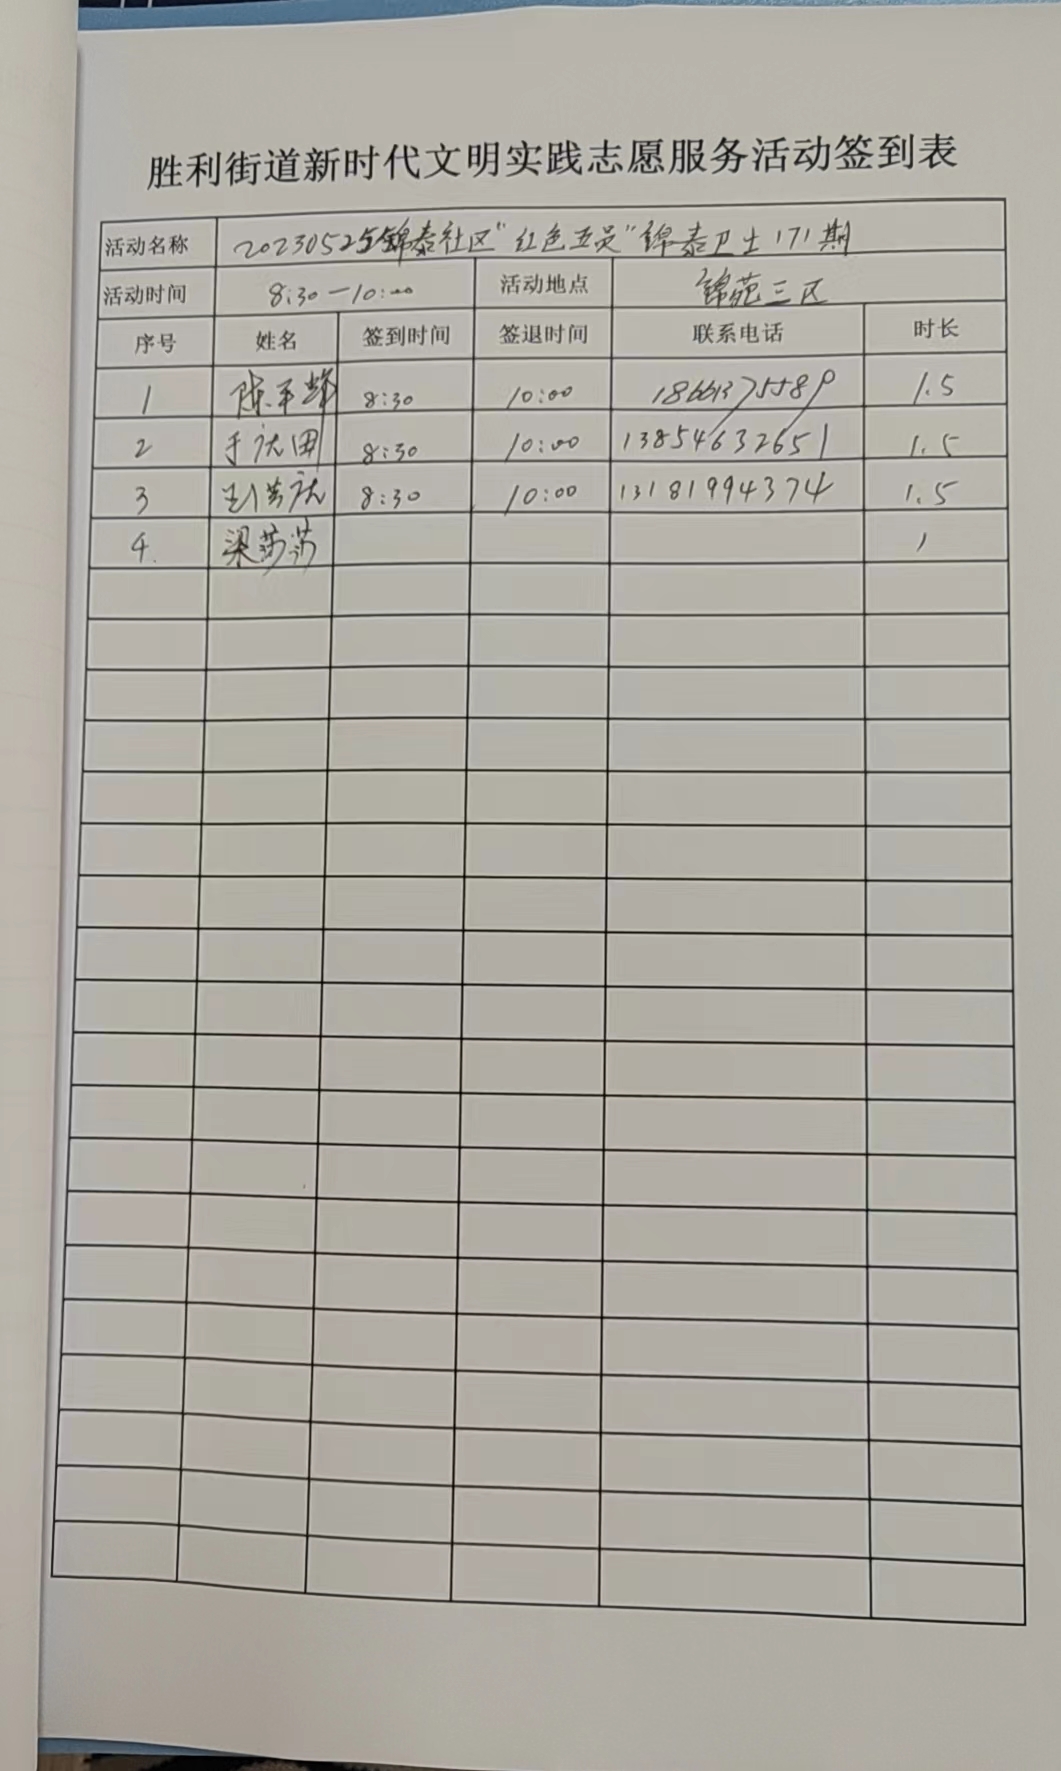 胜利街道新时代文明实践志愿服务活动签到表
活动名称 20230525锦泰社区“红色五员”锦泰卫士171期
活动时间 8:30—10:00 活动地点 锦苑三区
序号 姓名 签到时间 签退时间 联系电话 时长
1 8:30 10:00 18661375589 1.5
2 于庆国 8:30 10:00 13854632651 1.5
3 8:30 10:00 13181994374 1.5
4. 梁莎莎 1